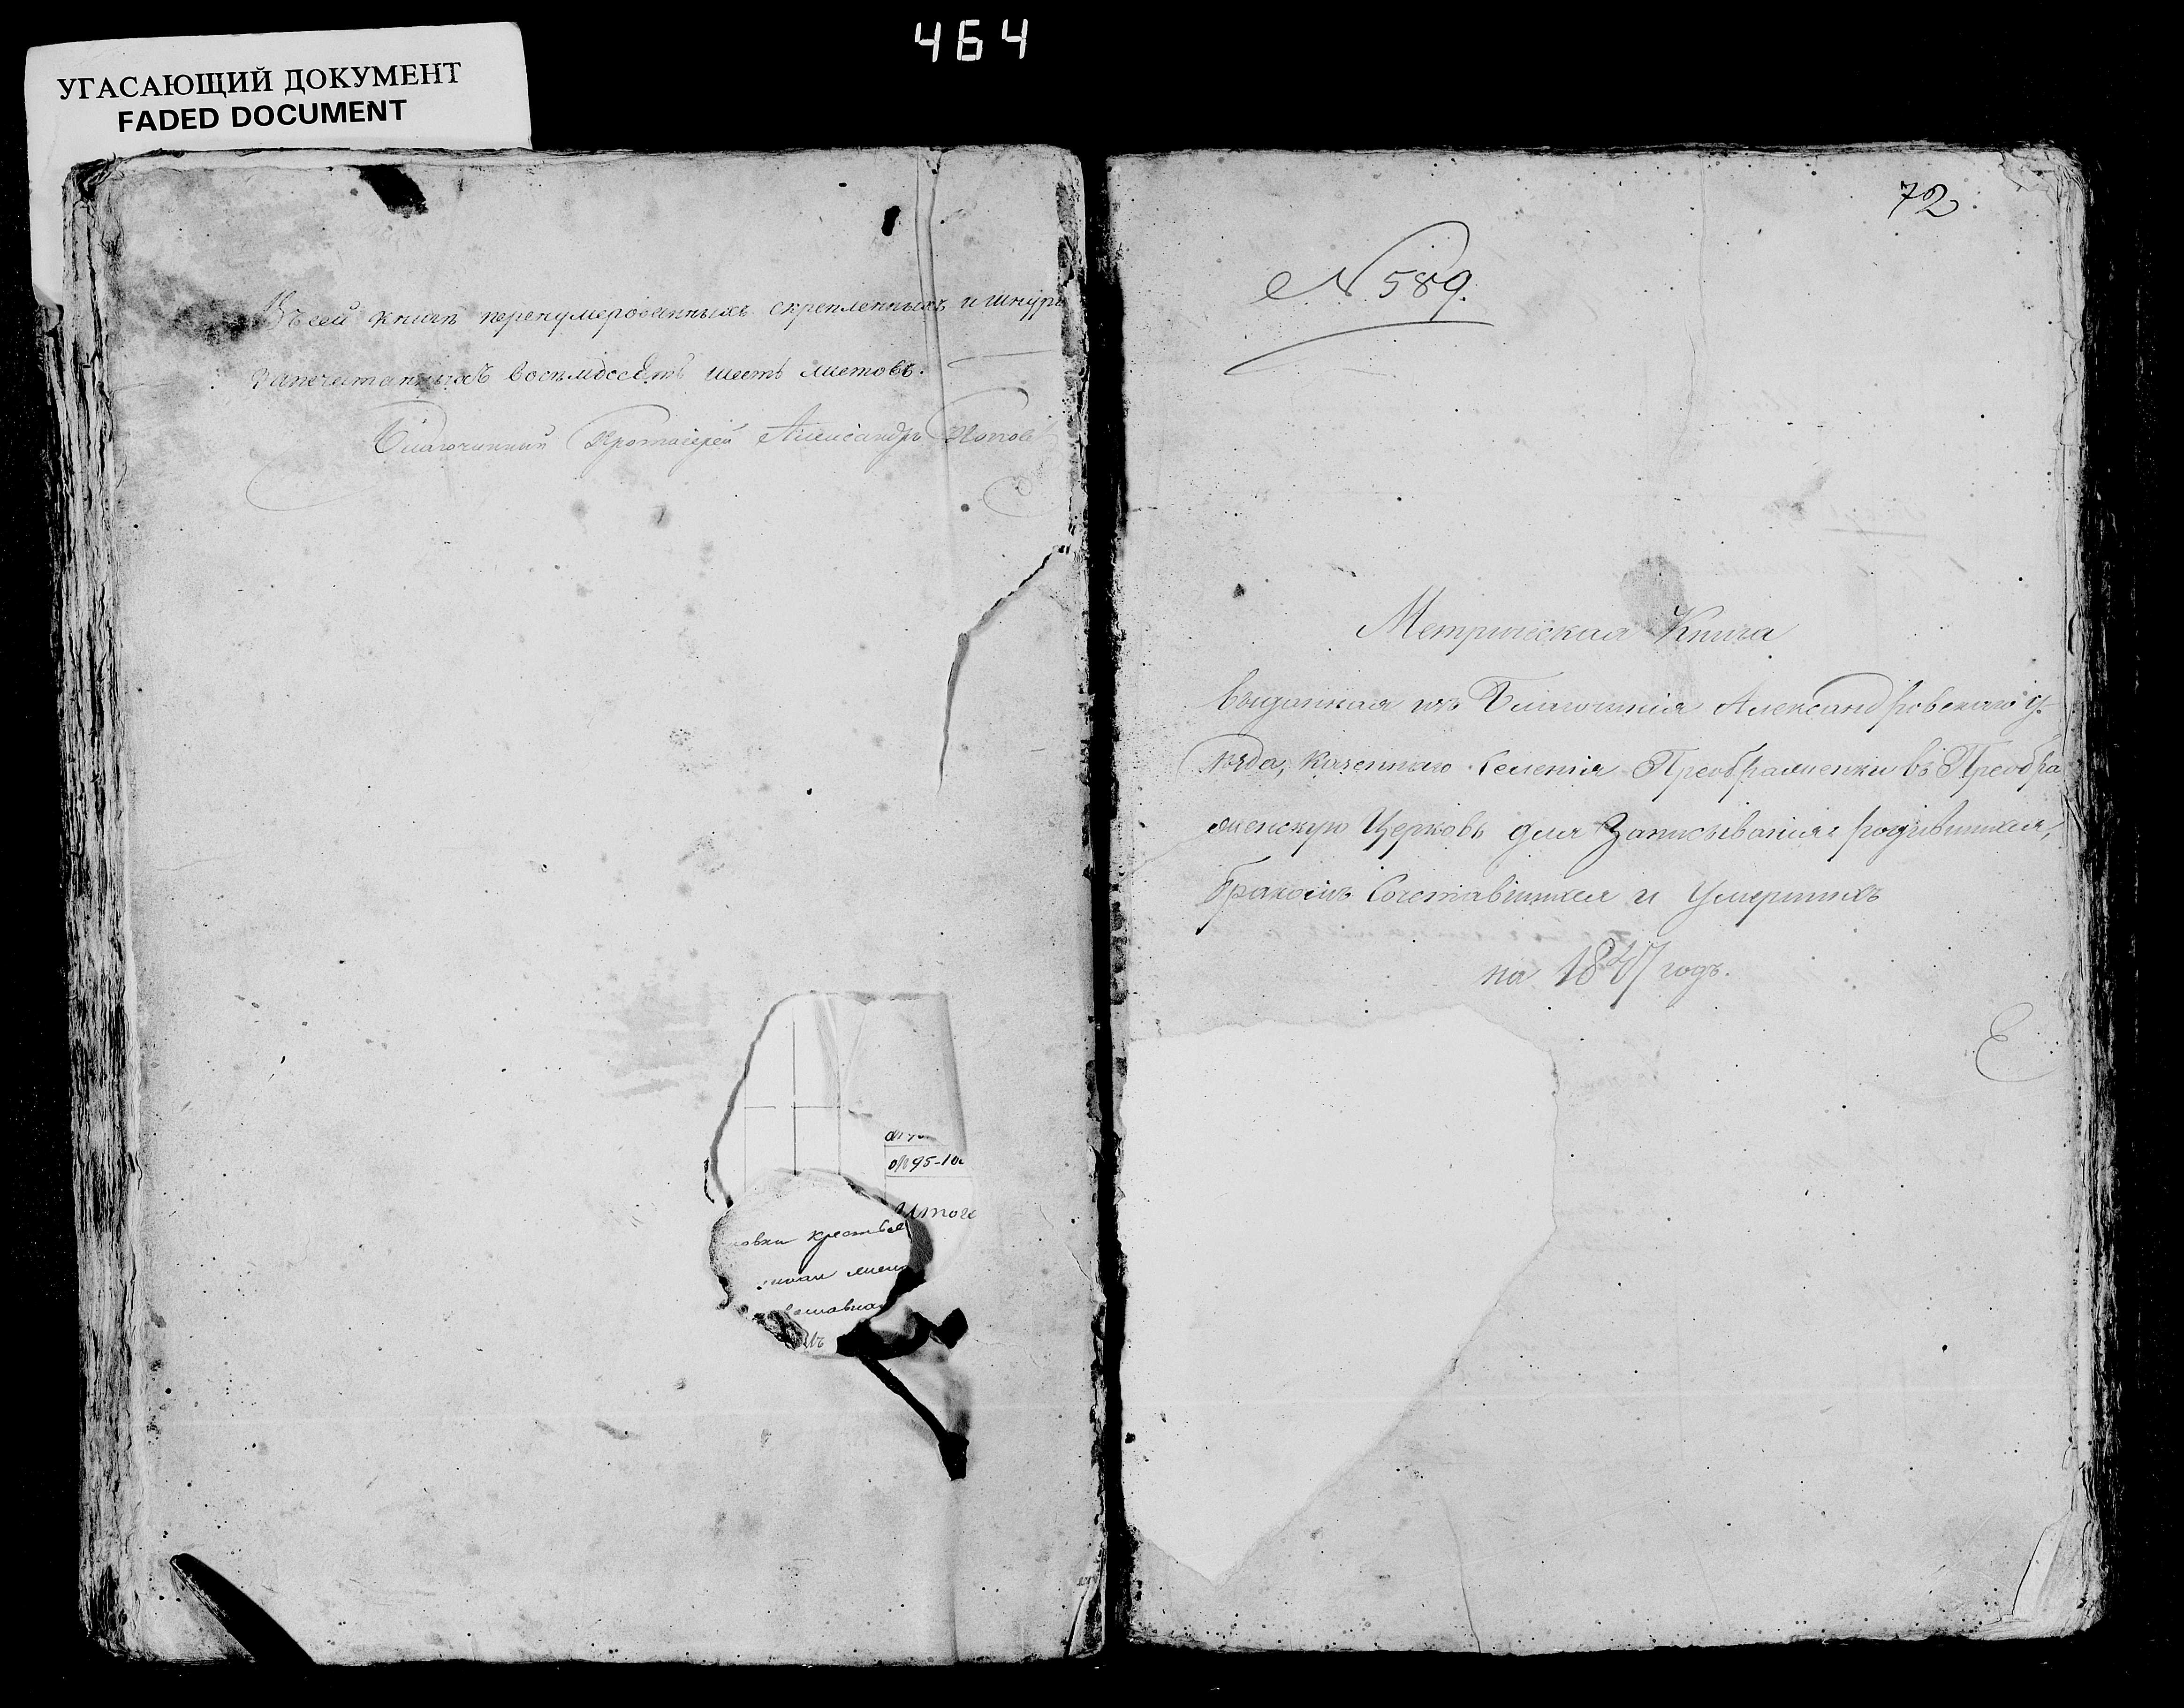 464
УГАСАЮЩИЙ ДОКУМЕНТ
FADED DOCUMENT
Въ сей книгѣ перенумерованныхъ скрепленныхъ и шнуро
запечатанныхъ восемдесятъ шесть листовъ.
Благочинный Протоіерей Александръ Попов
оп 95-10
Итого
овки крестья
72
N 589.
Метрическая Книга
выданная изъ Благочинія Александровскаго У-
ѣзда, Казеннаго Селенія Преображенки въ Преобра
женскую Церковь для Записыванія родившихся,
бракомъ Сочетавшихся и Умершихъ
на 1847 годъ.